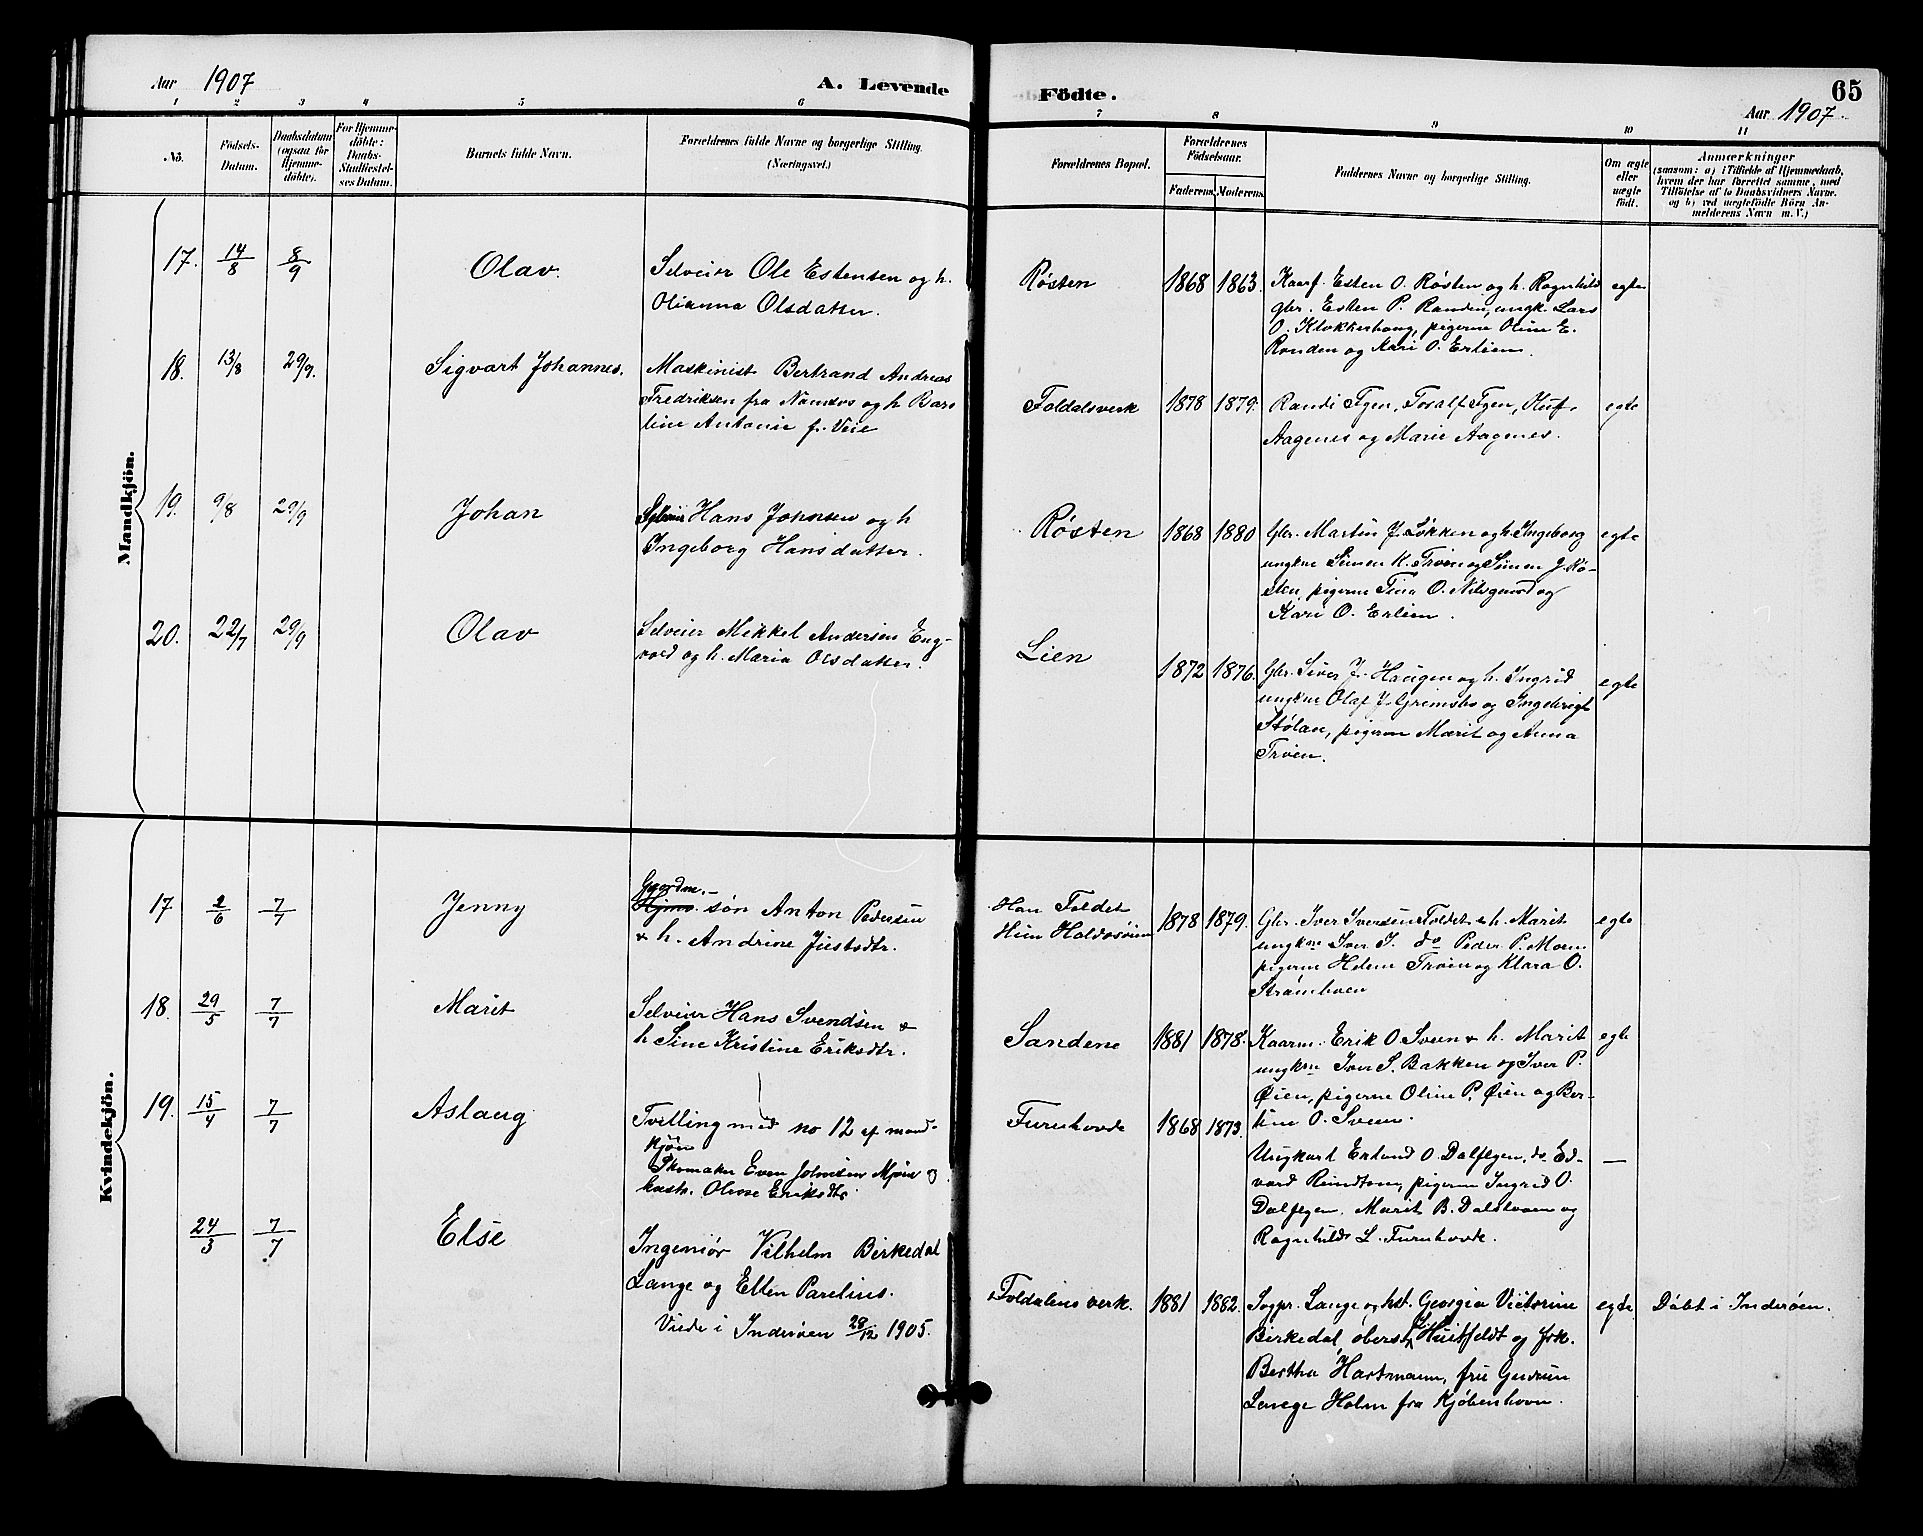 Aar 1907
A. Levende
Födte.
65
Aar 1907.
1 2 3 4 5 6 7 8 9 10 11
No.
Födsels-
Datum.
Daabsdatum
(ogsaa for
Hjemme-
döbte).
For Hjemme-
döbte:
Daabs-
Stadfæstel-
ses Datum.
Barnets fulde Navn.
Forældrenes fulde Navne og borgerlige Stilling.
(Næringsvei.)
Forældrenes Bopæl.
Forældrenes
Födselsaar.
Faderens. Moderens.
Faddernes Navne og borgerlige Stilling.
Om ægte
eller
uægte
födt.
Anmærkninger
(saasom: a) i Tilfælde af Hjemmedaab,
hvem der har forrettet samme, med
Tilföielse af to Daabsvidners Navne.
og b) ved uægtefödte Börn An-
melderens Navn m. V.)
Mandkjön.
17. 14/8 8/9 Olav.
Selveier Ole Estensen og h.
Olianna Olsdatter.
Røsten 1868 1863.
Kaarf. Esten O. Røsten og h. Ragnhild
gbr. Esten P. Randen, ungk. Lars
O. Klokkerhaug, pigerne Oline E.
Randen og Kari O. Erlien.
egte
18. 13/8 29/9. Sigvart Johannes.
Maskinist Bertrand Andreas
Fredriksen fra Namsos og h Bar
line Antonie f. Veie
Foldalsverk 1878 1879.
Randi Tgen, Toralf Tgen, Oluf
Aagenes og Marie Aagenes.
egte
19. 9/8 29/9 Johan
Selveier Hans Johnsen og h
Ingeborg Hansdatter.
Røsten 1868 1880
Gbr. Martin J. Løkken og h Ingeborg
ungkne Simen K. Trøen og Simen J. Rø-
sten, pigerne Tina O. Nilsgaard og
Kari O. Erlien.
egte
20. 22/7 29/9 Olav
Selveier Mikkel Andersen Eng-
vold og h. Maria Olsdatter.
Lien
1872 1876.
Gbr. Siver J. Haugen og h. Ingrid
ungkne Olaf J. Grimsbo og Ingebrigt
Stølan, pigerne Marit og Anna
Trøen.
egte
Kvindekjön.
17 2/6 7/7 Jenny
Gaardm.-
søn Anton Pedersen
& h. Andrine Justsdtr.
Han Foldet
Hun
1878 1879.
Gbr. Iver Iversen Foldet & h. Marit
ungkne Iver I. do Peder P. Moen
pigerne Helene Trøen og Klara O.
Strømhoen
egte
18. 29/5 7/7 Marit
Selveier Hans Svendsen &
h Sine Kristine Eriksdtr.
Sandene 1881 1878.
Kaarm. Erik O. Sveen & h. Marit
ungkne Iver S. Bakken og Iver P.
Øien, pigerne Oline P. Øien og Ber-
tine O. Sveen.
egte
19. 15/4 7/7 Aslaug
Tvilling med no 12 af mand-
kjøn
Skomaker Even Johnsen Mjøen og
hustr. Oline Eriksdtr.
Furuhovde 1868 1873.
Ungkarl Erland O. Dalflyen, do Ed-
vard Rundtom, pigerne Ingrid O.
Dalflyen, Marit B. Dalstroen og
Ragnhild L. Furuhovde.
—
24/3 7/7 Else
Ingeniør Vilhelm Birkedal
Lange og Ellen Parelius.
Viede i Inderøen 28/12 1905.
Foldalens verk. 1881 1882.
Sogpr. Lange og hst. Georgia Victorine
Birkedal, oberst Huitfeldt og frk.
Bertha Hartmann, fru Gudrun
Lange Holm fra Kjøbenhavn.
egte
Døbt i Inderøen.